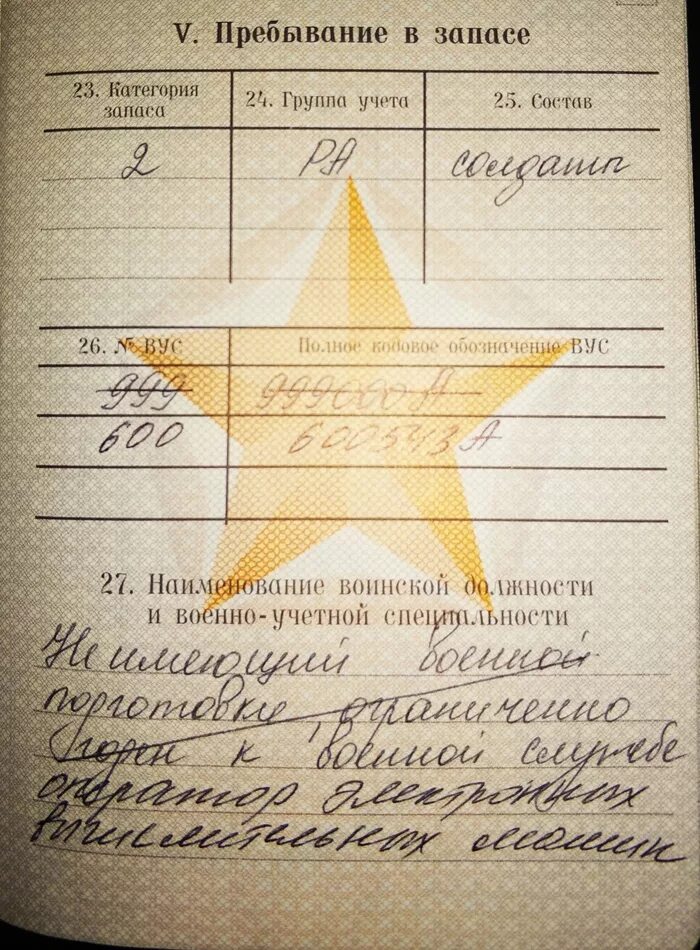 V. Пребывание в запасе
23. Категория запаса
24. Группа учета
25. Состав
2 РА солдаты
26. № ВУС Полное кодовое обозначение ВУС
999 999000А
600 600543А
27. Наименование воинской должности
и военно-учетной специальности
Не имеющий военной
подготовки, ограниченно
годен к военной службе
оператор электронных
вычислительных машин